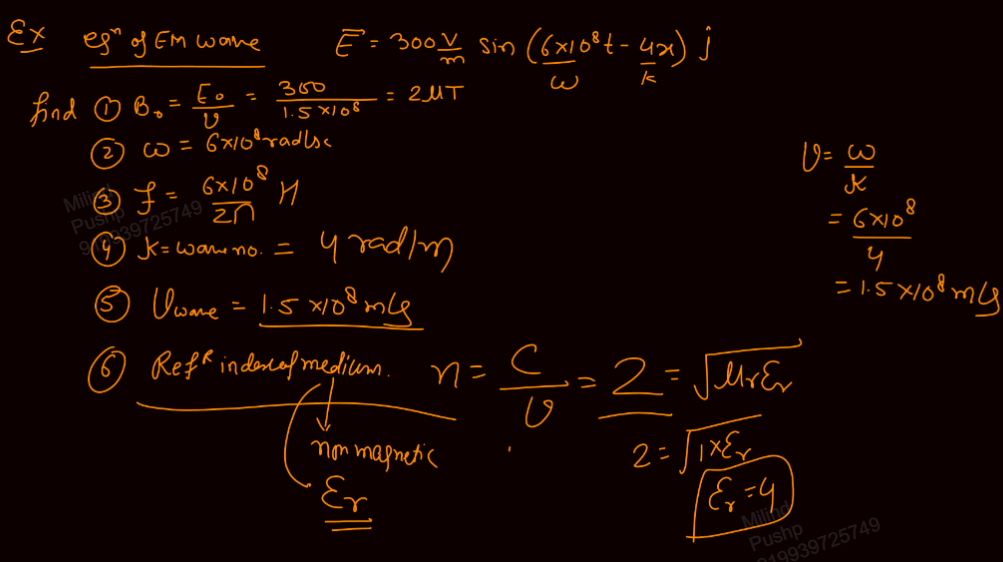 Ex eqn of EM wave E = 300 V/m sin (6×10⁸t - 4x) j
ω k
find ① B₀ = E₀/υ = 300/1.5×10⁸ = 2μT
② ω = 6×10⁸ rad/sc
υ = ω/k
③ f = 6×10⁸/2π H
= 6×10⁸/4
④ k = wave no. = 4 rad/m
= 1.5×10⁸ m/s
⑤ υwave = 1.5×10⁸ m/s
⑥ Refʳ index of medium. n = C/υ = 2 = √μrεr
non magnetic
2 = √1×εr
εr
εr = 4
Milind
Pushp
919939725749
Milind
Pushp
919939725749